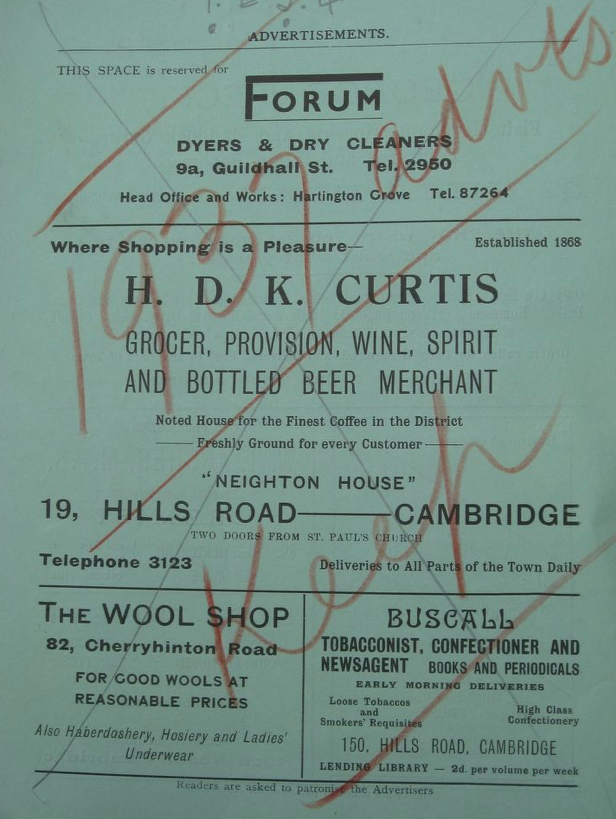 ADVERTISEMENTS.
THIS SPACE is reserved for
FORUM
DYERS & DRY CLEANERS
9a, Guildhall St. Tel. 2950
Head Office and Works: Hartington Grove Tel. 87264
1937 advts
Where Shopping is a Pleasure—
Established 1868
H. D. K. CURTIS
GROCER, PROVISION, WINE, SPIRIT
AND BOTTLED BEER MERCHANT
Noted House for the Finest Coffee in the District
Freshly Ground for every Customer
"NEIGHTON HOUSE"
19, HILLS ROAD——CAMBRIDGE
TWO DOORS FROM ST. PAUL'S CHURCH
Telephone 3123
Deliveries to All Parts of the Town Daily
Keep
THE WOOL SHOP
82, Cherryhinton Road
FOR GOOD WOOLS AT
REASONABLE PRICES
Also Haberdashery, Hosiery and Ladies'
Underwear
BUSCALL
TOBACCONIST, CONFECTIONER AND
NEWSAGENT BOOKS AND PERIODICALS
EARLY MORNING DELIVERIES
Loose Tobaccos
and
Smokers' Requisites
High Class
Confectionery
150, HILLS ROAD, CAMBRIDGE
LENDING LIBRARY — 2d. per volume per week
Readers are asked to patronise the Advertisers